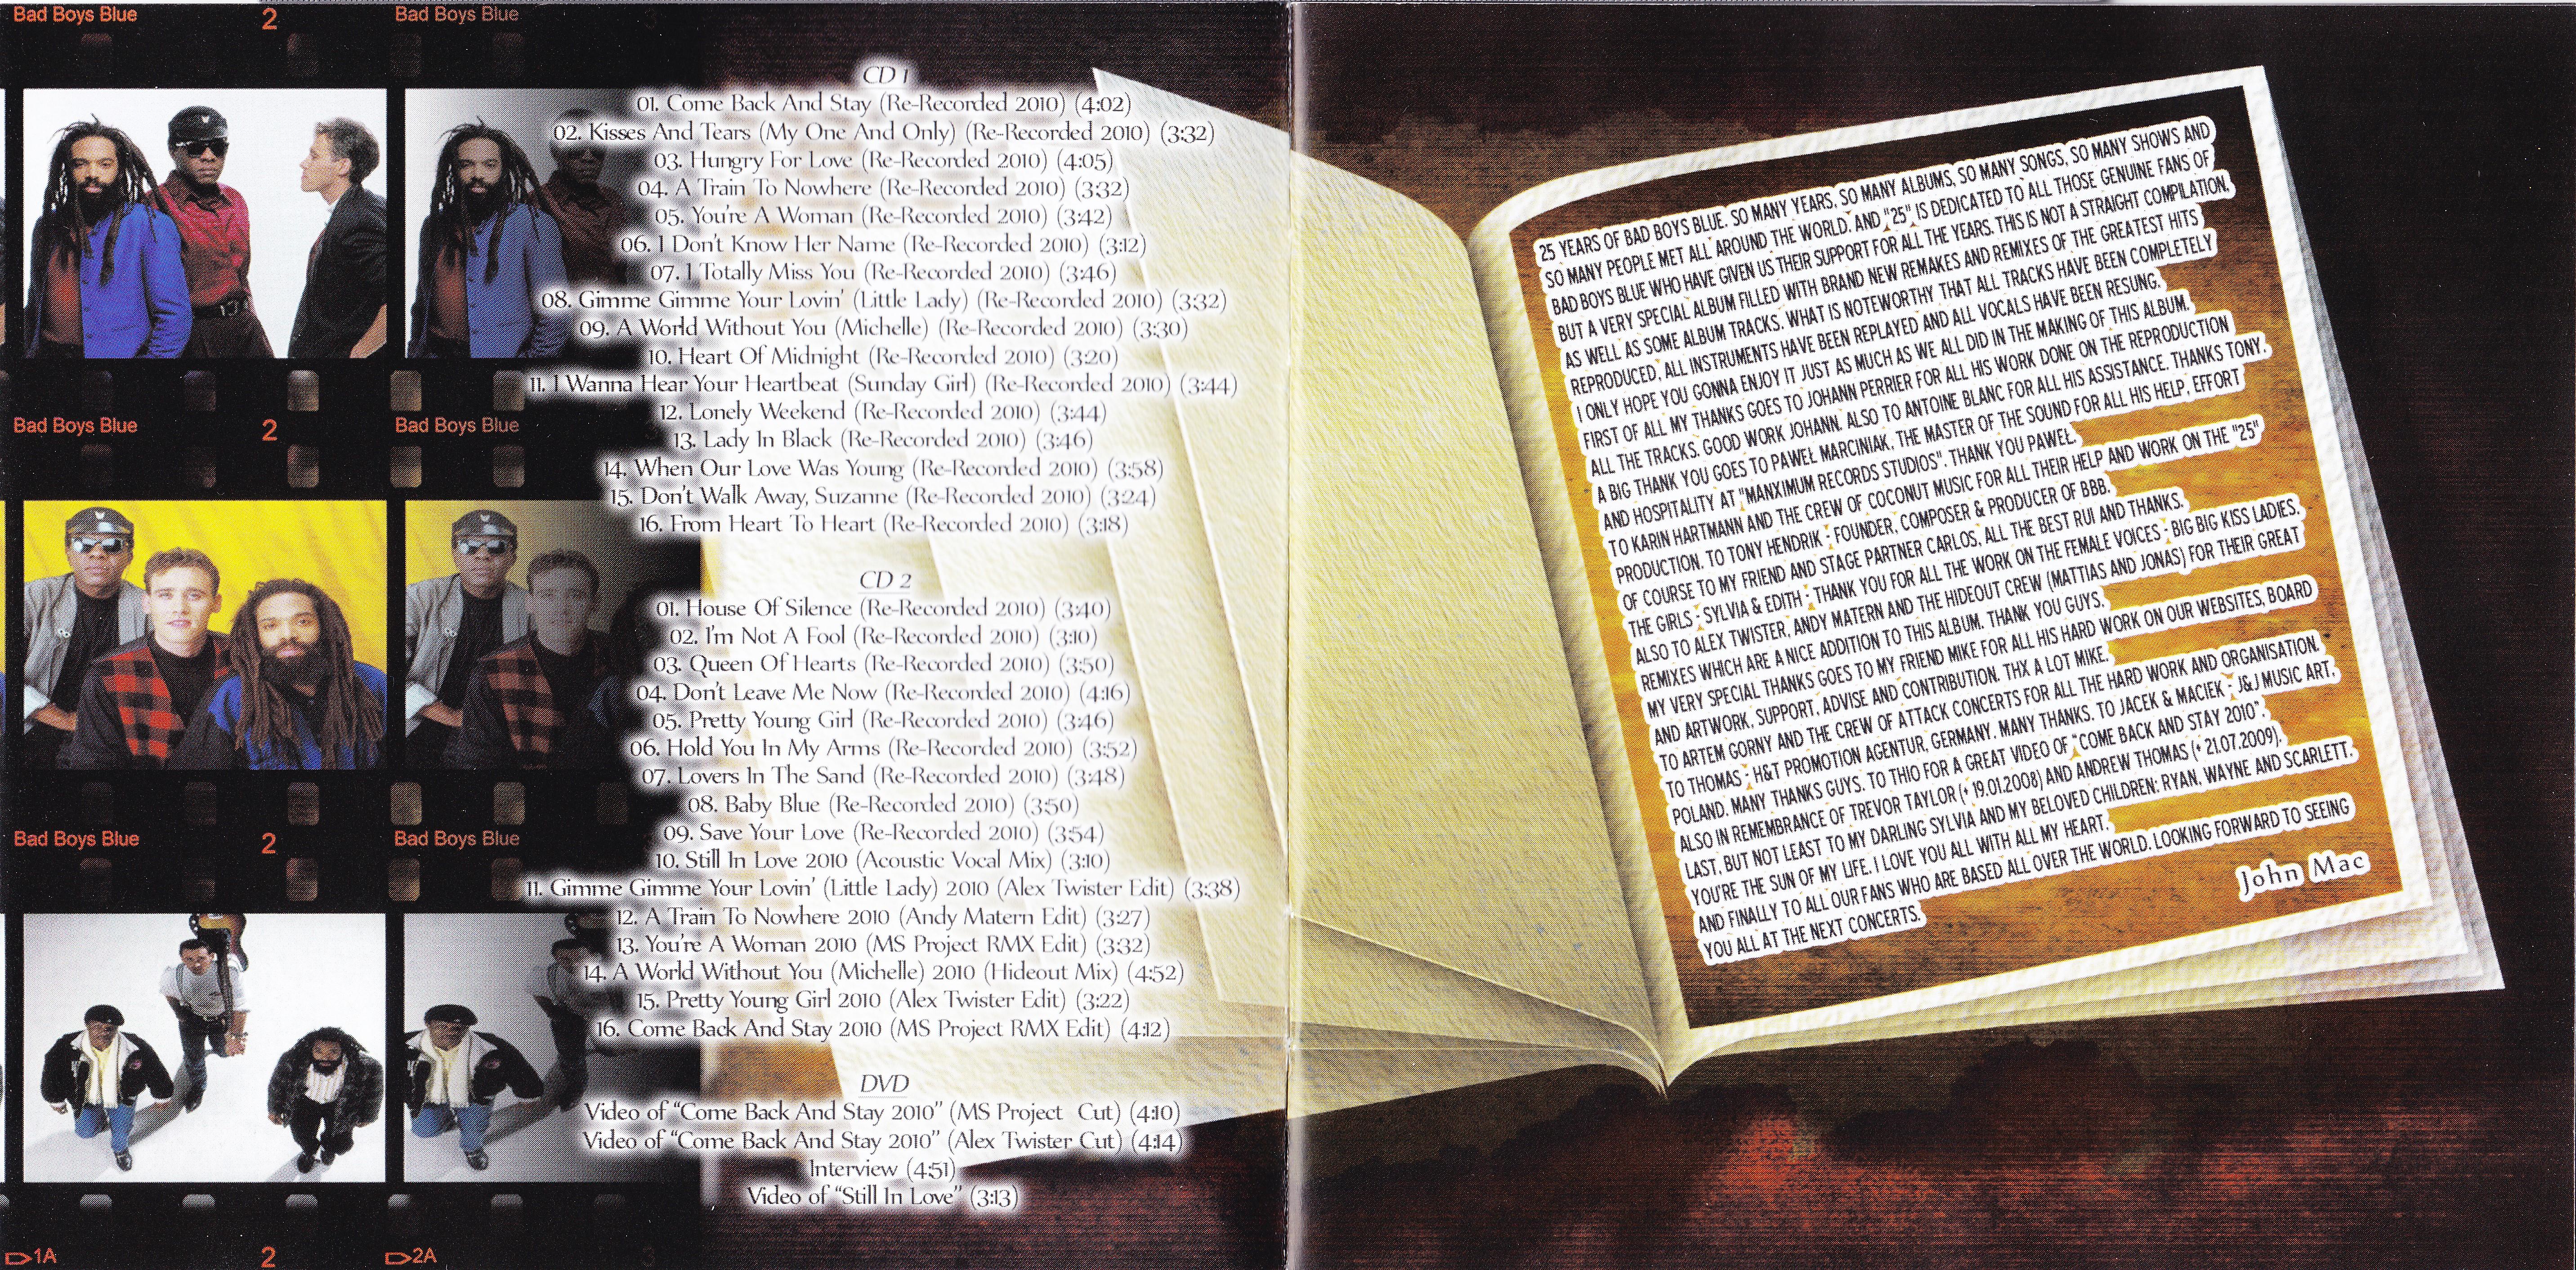 Bad Boys Blue 2 Bad Boys Blue 3
CD 1
01. Come Back And Stay (Re-Recorded 2010) (4:02)
02. Kisses And Tears (My One And Only) (Re-Recorded 2010) (3:32)
03. Hungry For Love (Re-Recorded 2010) (4:05)
04. A Train To Nowhere (Re-Recorded 2010) (3:32)
05. You're A Woman (Re-Recorded 2010) (3:42)
06. I Don't Know Her Name (Re-Recorded 2010) (3:12)
07. I Totally Miss You (Re-Recorded 2010) (3:46)
08. Gimme Gimme Your Lovin' (Little Lady) (Re-Recorded 2010) (3:32)
09. A World Without You (Michelle) (Re-Recorded 2010) (3:30)
10. Heart Of Midnight (Re-Recorded 2010) (3:20)
11. I Wanna Hear Your Heartbeat (Sunday Girl) (Re-Recorded 2010) (3:44)
12. Lonely Weekend (Re-Recorded 2010) (3:44)
13. Lady In Black (Re-Recorded 2010) (3:46)
14. When Our Love Was Young (Re-Recorded 2010) (3:58)
15. Don't Walk Away, Suzanne (Re-Recorded 2010) (3:24)
16. From Heart To Heart (Re-Recorded 2010) (3:18)
Bad Boys Blue 2 Bad Boys Blue
CD 2
01. House Of Silence (Re-Recorded 2010) (3:40)
02. I'm Not A Fool (Re-Recorded 2010) (3:10)
03. Queen Of Hearts (Re-Recorded 2010) (3:50)
04. Don't Leave Me Now (Re-Recorded 2010) (4:16)
05. Pretty Young Girl (Re-Recorded 2010) (3:46)
06. Hold You In My Arms (Re-Recorded 2010) (3:52)
07. Lovers In The Sand (Re-Recorded 2010) (3:48)
08. Baby Blue (Re-Recorded 2010) (3:50)
09. Save Your Love (Re-Recorded 2010) (3:54)
10. Still In Love 2010 (Acoustic Vocal Mix) (3:10)
11. Gimme Gimme Your Lovin' (Little Lady) 2010 (Alex Twister Edit) (3:38)
12. A Train To Nowhere 2010 (Andy Matern Edit) (3:27)
13. You're A Woman 2010 (MS Project RMX Edit) (3:32)
14. A World Without You (Michelle) 2010 (Hideout Mix) (4:52)
15. Pretty Young Girl 2010 (Alex Twister Edit) (3:22)
16. Come Back And Stay 2010 (MS Project RMX Edit) (4:12)
Bad Boys Blue 2 Bad Boys Blue
DVD
Video of "Come Back And Stay 2010" (MS Project Cut) (4:10)
Video of "Come Back And Stay 2010" (Alex Twister Cut) (4:14)
Interview (4:51)
Video of "Still In Love" (3:13)
1A 2 2A 3
25 YEARS OF BAD BOYS BLUE. SO MANY YEARS, SO MANY ALBUMS, SO MANY SONGS, SO MANY SHOWS AND
SO MANY PEOPLE MET ALL AROUND THE WORLD. AND "25" IS DEDICATED TO ALL THOSE GENUINE FANS OF
BAD BOYS BLUE WHO HAVE GIVEN US THEIR SUPPORT FOR ALL THE YEARS. THIS IS NOT A STRAIGHT COMPILATION,
BUT A VERY SPECIAL ALBUM FILLED WITH BRAND NEW REMAKES AND REMIXES OF THE GREATEST HITS
AS WELL AS SOME ALBUM TRACKS. WHAT IS NOTEWORTHY THAT ALL TRACKS HAVE BEEN COMPLETELY
REPRODUCED, ALL INSTRUMENTS HAVE BEEN REPLAYED AND ALL VOCALS HAVE BEEN RESUNG.
I ONLY HOPE YOU GONNA ENJOY IT JUST AS MUCH AS WE ALL DID IN THE MAKING OF THIS ALBUM.
FIRST OF ALL MY THANKS GOES TO JOHANN PERRIER FOR ALL HIS WORK DONE ON THE REPRODUCTION
ALL THE TRACKS. GOOD WORK JOHANN. ALSO TO ANTOINE BLANC FOR ALL HIS ASSISTANCE. THANKS TONY.
A BIG THANK YOU GOES TO PAWEŁ MARCINIAK, THE MASTER OF THE SOUND FOR ALL HIS HELP, EFFORT
AND HOSPITALITY AT "MANXIMUM RECORDS STUDIOS". THANK YOU PAWEŁ.
TO KARIN HARTMANN AND THE CREW OF COCONUT MUSIC FOR ALL THEIR HELP AND WORK ON THE "25"
PRODUCTION. TO TONY HENDRIK - FOUNDER, COMPOSER & PRODUCER OF BBB.
OF COURSE TO MY FRIEND AND STAGE PARTNER CARLOS, ALL THE BEST RUI AND THANKS.
THE GIRLS - SYLVIA & EDITH - THANK YOU FOR ALL THE WORK ON THE FEMALE VOICES - BIG BIG KISS LADIES.
ALSO TO ALEX TWISTER, ANDY MATERN AND THE HIDEOUT CREW (MATTIAS AND JONAS) FOR THEIR GREAT
REMIXES WHICH ARE A NICE ADDITION TO THIS ALBUM. THANK YOU GUYS.
MY VERY SPECIAL THANKS GOES TO MY FRIEND MIKE FOR ALL HIS HARD WORK ON OUR WEBSITES, BOARD
AND ARTWORK, SUPPORT, ADVISE AND CONTRIBUTION. THX A LOT MIKE.
TO ARTEM GORNY AND THE CREW OF ATTACK CONCERTS FOR ALL THE HARD WORK AND ORGANISATION.
TO THOMAS - H&T PROMOTION AGENTUR, GERMANY. MANY THANKS. TO JACEK & MACIEK - J&J MUSIC ART,
POLAND. MANY THANKS GUYS. TO THIO FOR A GREAT VIDEO OF "COME BACK AND STAY 2010".
ALSO IN REMEMBRANCE OF TREVOR TAYLOR (+ 19.01.2008) AND ANDREW THOMAS (+ 21.07.2009).
LAST, BUT NOT LEAST TO MY DARLING SYLVIA AND MY BELOVED CHILDREN: RYAN, WAYNE AND SCARLETT.
YOU'RE THE SUN OF MY LIFE. I LOVE YOU ALL WITH ALL MY HEART.
AND FINALLY TO ALL OUR FANS WHO ARE BASED ALL OVER THE WORLD. LOOKING FORWARD TO SEEING
YOU ALL AT THE NEXT CONCERTS.
John Mac